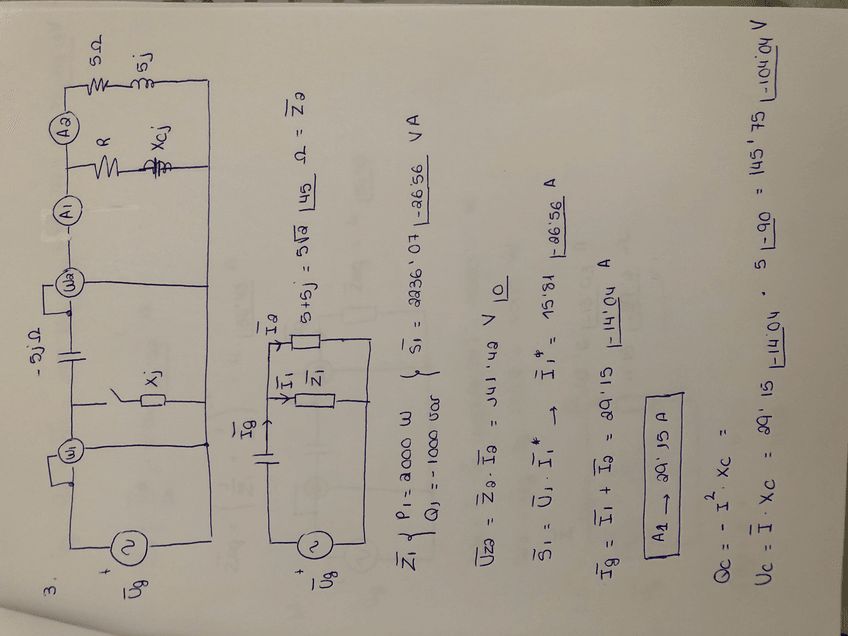 3.
-5jΩ
W1
W2
A1
A2
+
~
Ūg
Xj
R
Xcj
5Ω
5j
+
~
Ūg
Īg
Ī1
Z̄1
Ī2
5+5j = 5√2 |45 Ω = Z̄2
Z̄1 { P1 = 2000 W
Q1 = -1000 var { S̄1 = 2236'07 |-26'56 VA
Ūz2 = Z̄2 · Ī2 = 141'42 V |0
S̄1 = Ū1 · Ī1* → Ī1* = 15'81 |-26'56 A
Īg = Ī1 + Ī2 = 29'15 |-14'04 A
A1 → 29'15 A
Qc = - I² · Xc =
Uc = Ī · Xc = 29'15 |-14'04 · 5 |-90 = 145'75 |-104'04 V